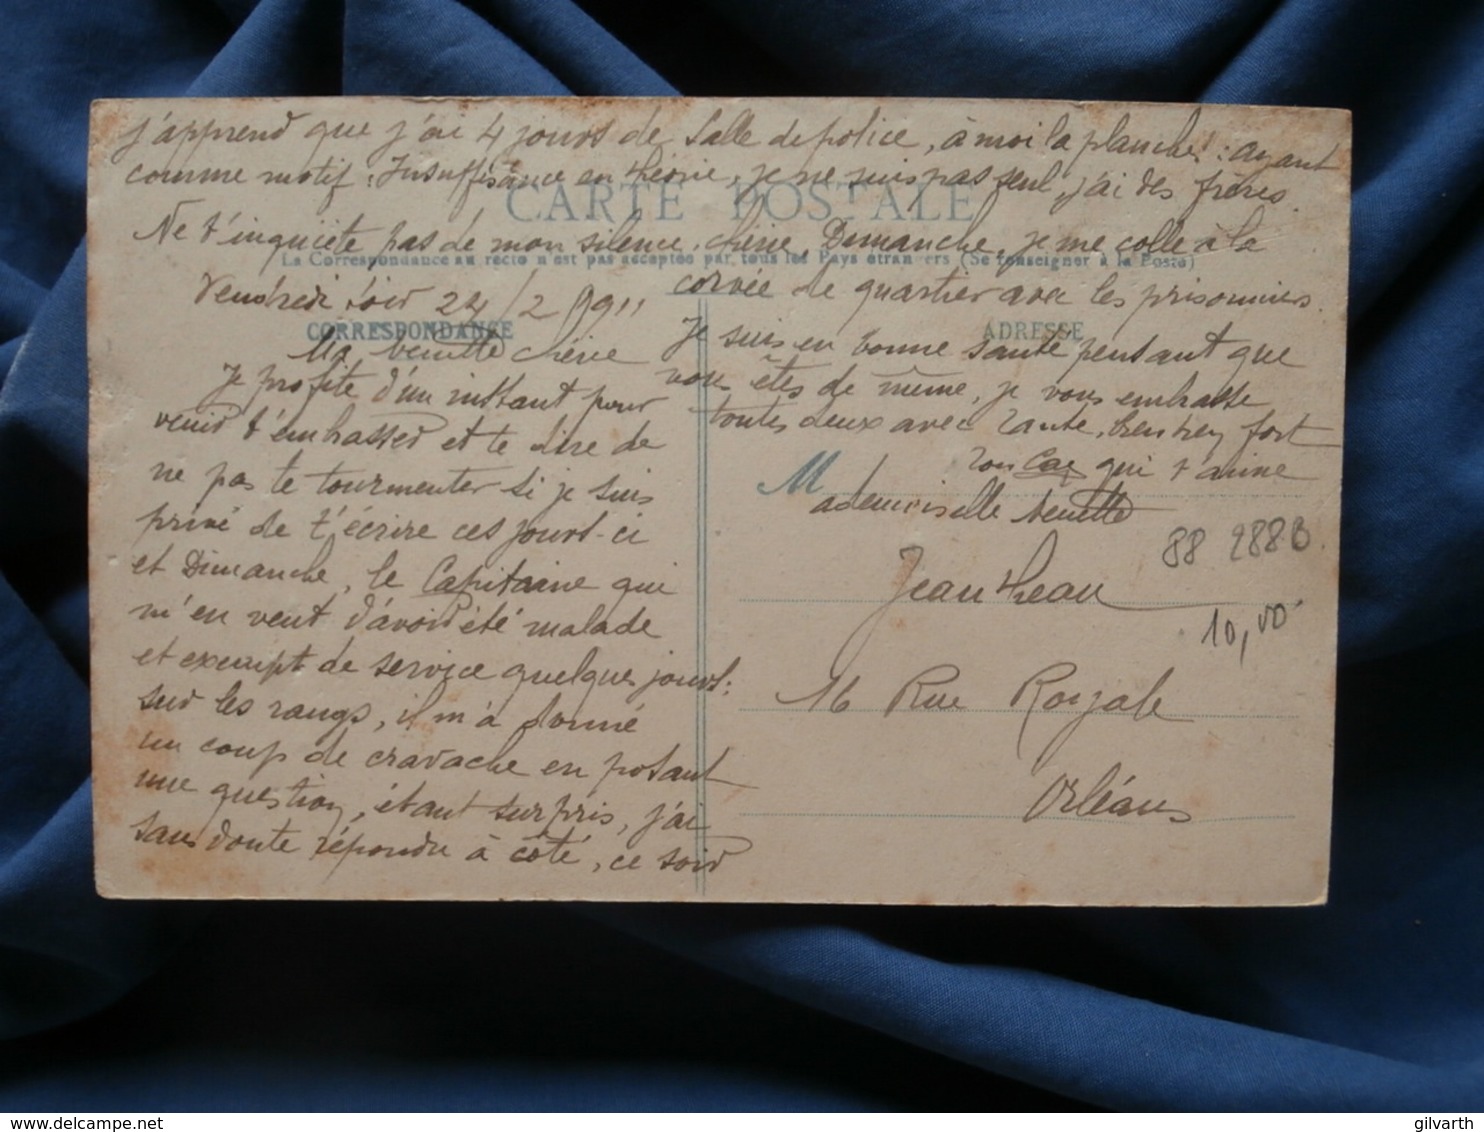 j'apprend que j'ai 4 jours de Salle de police, à moi la planche! : ayant
comme motif : Insuffisance en théorie, je ne suis pas seul, j'ai des frères.
CARTE POSTALE
Ne t'inquiète pas de mon silence, chérie, Dimanche, je me colle à la
La Correspondance au recto n'est pas acceptée par tous les Pays étrangers (Se renseigner à la Poste)
corvée de quartier avec les prisonniers.
Je suis en bonne santé pensant que
vous êtes de même, je vous embrasse
toutes deux avec Tante, bien fort
ton qui t'aime
Vendredi soir 24/2 1911
CORRESPONDANCE
Ma chérie
Je profite d'un instant pour
venir t'embrasser et te dire de
ne pas te tourmenter si je suis
privé de t'écrire ces jours-ci
et Dimanche, le Capitaine qui
m'en veut d'avoir été malade
et exempt de service quelques jours :
sur les rangs, il m'a donné
un coup de cravache en posant
une question, étant surpris, j'ai
sans doute répondu à côté, ce soir
ADRESSE
Mademoiselle
Jeantheau
16 Rue Royale
Orléans
88 288B
10,00
gilvarth